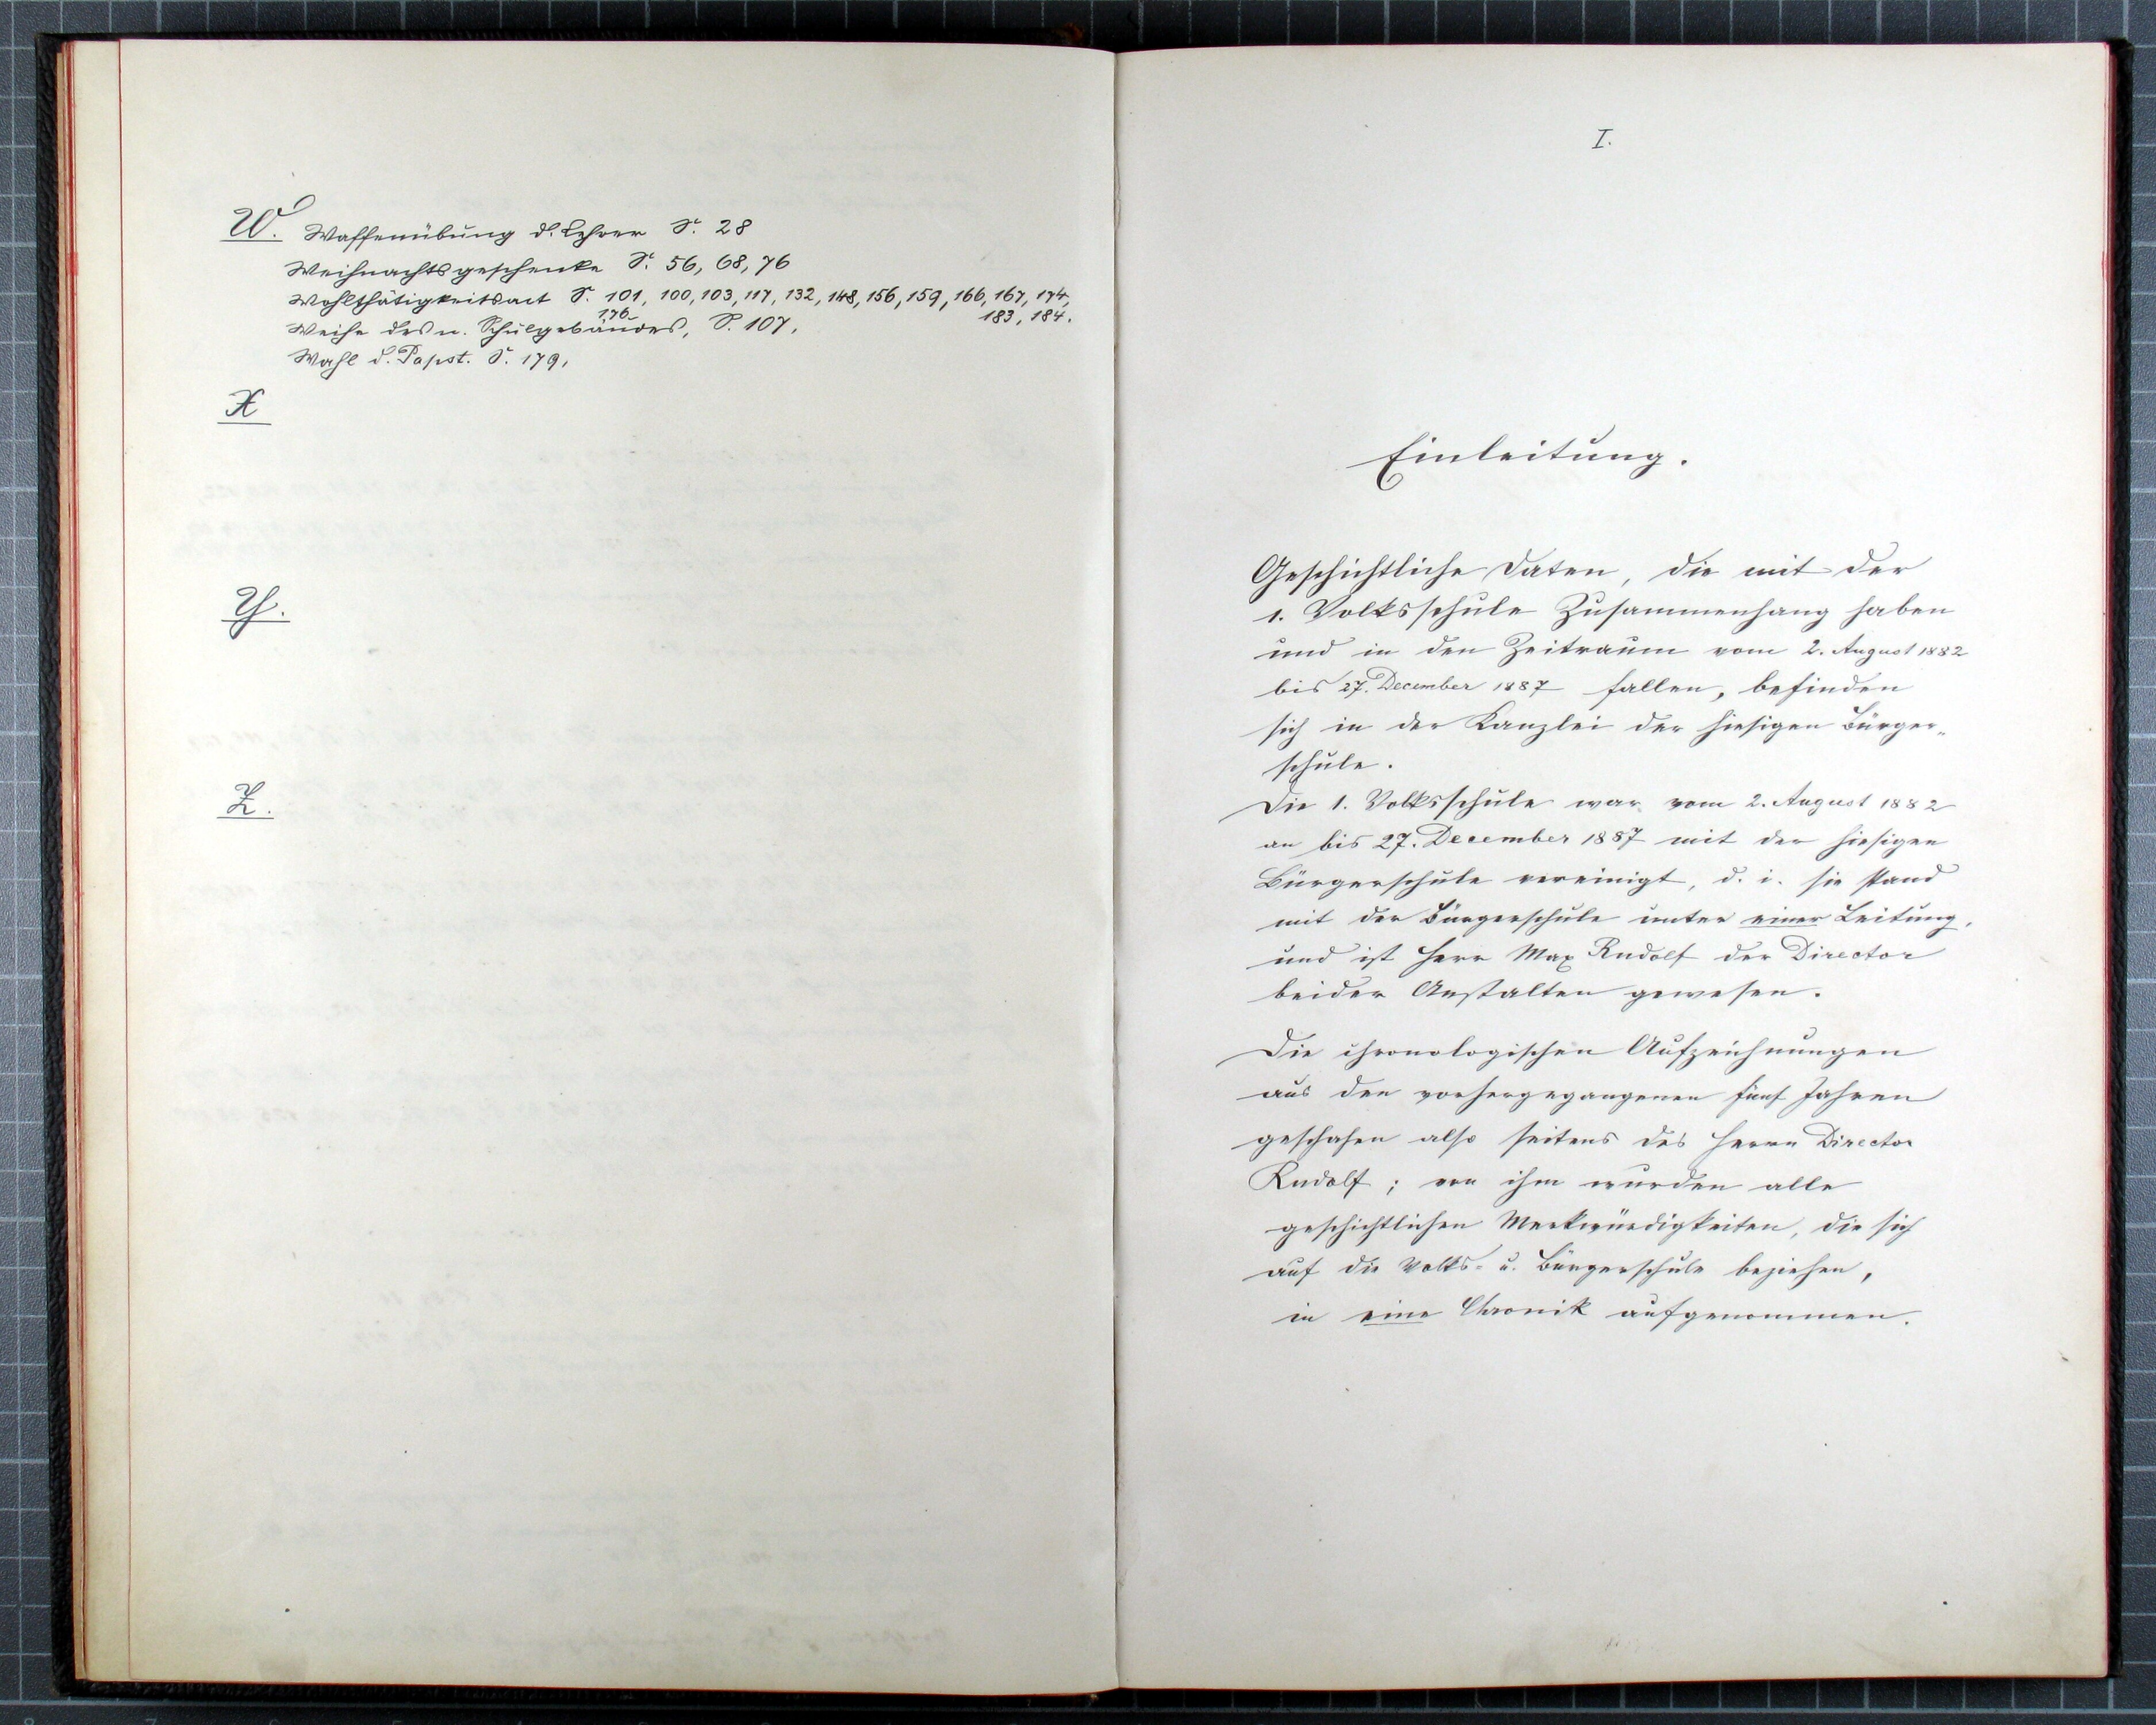 W. Waffenübung d. Lehrer S. 28
Weihnachtsgeschenke S. 56, 68, 76
Wohlthätigkeitsact S. 101, 100, 103, 117, 132, 148, 156, 159, 166, 167, 174,
176 183, 184.
Weihe des n. Schulgebäudes, S. 107,
Wahl d. Papst. S. 179,
X
Y.
Z.
I.
Einleitung.
Geschichtliche Daten, die mit der
1. Volksschule Zusammenhang haben
und in den Zeitraum vom 2. August 1882
bis 27. December 1887 fallen, befinden
sich in der Kanzlei der hiesigen Bürger„
schule.
Die 1. Volksschule war vom 2. August 1882
an bis 27. December 1887 mit der hiesigen
Bürgerschule vereinigt, d. i. sie stand
mit der Bürgerschule unter einer Leitung,
und ist Herr Max Rudolf der Director
beider Anstalten gewesen.
Die chronologischen Aufzeichnungen
aus den vorhergegangenen fünf Jahren
geschahen also seitens des Herrn Director
Rudolf; von ihm wurden alle
geschichtlichen Merkwürdigkeiten, die sich
auf die Volks- u. Bürgerschule beziehen,
in eine Chronik aufgenommen.